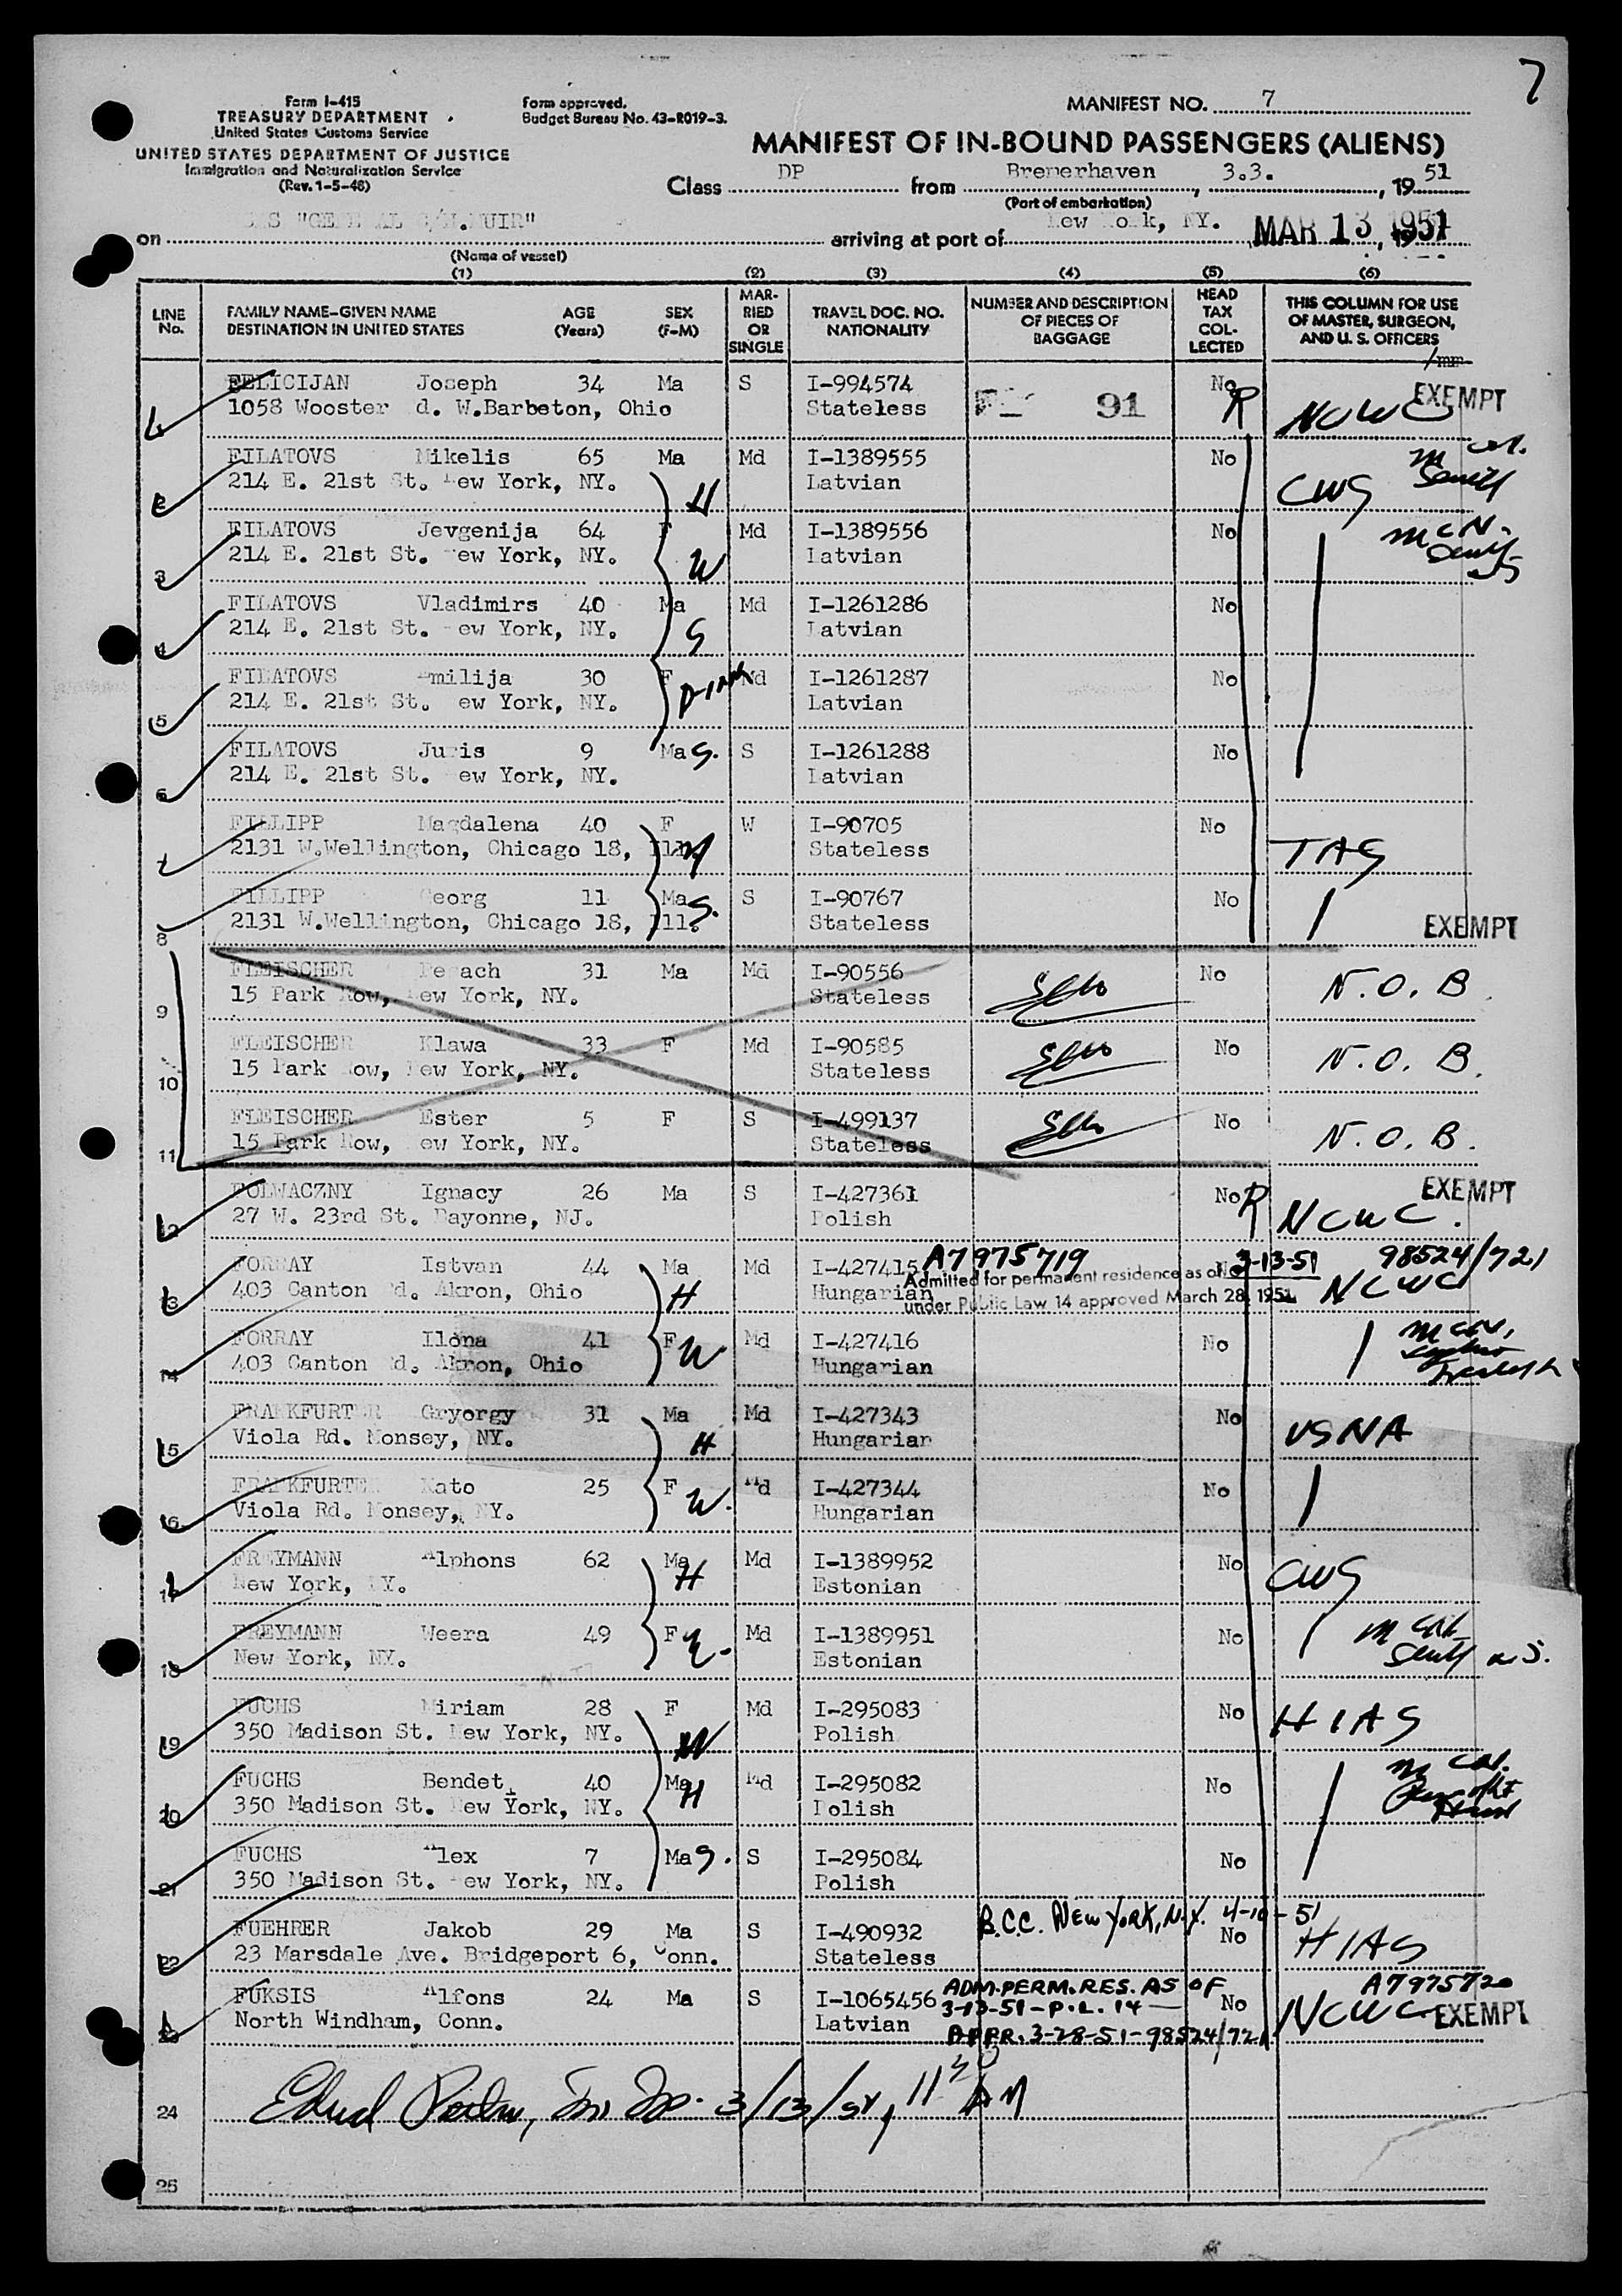 7
Form I-415
TREASURY DEPARTMENT
United States Customs Service
UNITED STATES DEPARTMENT OF JUSTICE
Immigration and Naturalization Service
(Rev. 1-5-48)
Form approved.
Budget Bureau No. 43-R019-3.
MANIFEST NO. 7
MANIFEST OF IN-BOUND PASSENGERS (ALIENS)
Class DP from Bremerhaven, 3.3., 1951
(Port of embarkation)
on arriving at port of New York, NY. MAR 13 1951
(Name of vessel)
(1) (2) (3) (4) (5) (6)
LINE No. FAMILY NAME-GIVEN NAME DESTINATION IN UNITED STATES AGE (Years) SEX (F-M) MARRIED OR SINGLE TRAVEL DOC. NO. NATIONALITY NUMBER AND DESCRIPTION OF PIECES OF BAGGAGE HEAD TAX COLLECTED THIS COLUMN FOR USE OF MASTER, SURGEON, AND U. S. OFFICERS
FELICIJAN Joseph 34 Ma S I-994574 No R EXEMPT
1058 Wooster d. W.Barbeton, Ohio Stateless 91 NCWC
2 FILATOVS Mikelis 65 Ma Md I-1389555 No
214 E. 21st St. New York, NY. H Latvian CWS
3 FILATOVS Jevgenija 64 F Md I-1389556 No
214 E. 21st St. New York, NY. W Latvian
4 FILATOVS Vladimirs 40 Ma Md I-1261286 No
214 E. 21st St. New York, NY. S Latvian
5 FILATOVS Emilija 30 F Md I-1261287 No
214 E. 21st St. New York, NY. Latvian
6 FILATOVS Juris 9 Ma S. S I-1261288 No
214 E. 21st St. New York, NY. Latvian
7 FILLIPP Magdalena 40 F W I-90705 No
2131 W.Wellington, Chicago 18, Ill. M Stateless TAS
8 FILLIPP Georg 11 Ma S. S I-90767 No
2131 W.Wellington, Chicago 18, Ill. Stateless EXEMPT
9 FLEISCHER 31 Ma Md I-90556 No N.O.B.
15 Park Row, New York, NY. Stateless
10 FLEISCHER Klawa 33 F Md I-90585 No N.O.B.
15 Park Row, New York, NY. Stateless
11 FLEISCHER Ester 5 F S I-499137 No N.O.B.
15 Park Row, New York, NY. Stateless
12 FOLWACZNY Ignacy 26 Ma S I-427361 No R EXEMPT
27 W. 23rd St. Bayonne, NJ. Polish NCWC.
13 FORRAY Istvan 44 Ma Md I-427415 A7975719 No 3-13-51 98524/721
403 Canton Rd. Akron, Ohio H Hungarian Admitted for permanent residence as of NCWC
under Public Law 14 approved March 28, 1951
14 FORRAY Ilona 41 F W Md I-427416 No
403 Canton Rd. Akron, Ohio Hungarian
15 FRANKFURTER Gryorgy 31 Ma Md I-427343 No
Viola Rd. Monsey, NY. H Hungarian USNA
16 FRANKFURTER Kato 25 F W. Md I-427344 No
Viola Rd. Monsey, NY. Hungarian
17 FREYMANN Alphons 62 Ma H Md I-1389952 No
New York, NY. Estonian CWS
18 FREYMANN Weera 49 F Md I-1389951 No
New York, NY. Estonian
19 FUCHS Miriam 28 F Md I-295083 No HIAS
350 Madison St. New York, NY. W Polish
20 FUCHS Bendet 40 Ma H Md I-295082 No
350 Madison St. New York, NY. Polish
21 FUCHS Alex 7 Ma S. S I-295084 No
350 Madison St. New York, NY. Polish
B.C.C. NEW YORK, N.Y. 4-10-51
22 FUEHRER Jakob 29 Ma S I-490932 No HIAS
23 Marsdale Ave. Bridgeport 6, Conn. Stateless
ADM. PERM. RES. AS OF A7975720
23 FUKSIS Alfons 24 Ma S I-1065456 3-13-51-P.L. 14 No NCWC EXEMPT
North Windham, Conn. Latvian APPR. 3-28-51-98524/721
24 3/13/51, 11 30 AM
25